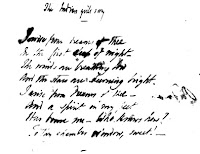 The Indian girl's song
I arise from dreams of thee
In the first sleep of night —
The winds are breathing low
And the stars are burning bright.
I arise from dreams of thee —
And a spirit in my feet
Has borne me — Who knows how?
To thy chamber window, sweet! —